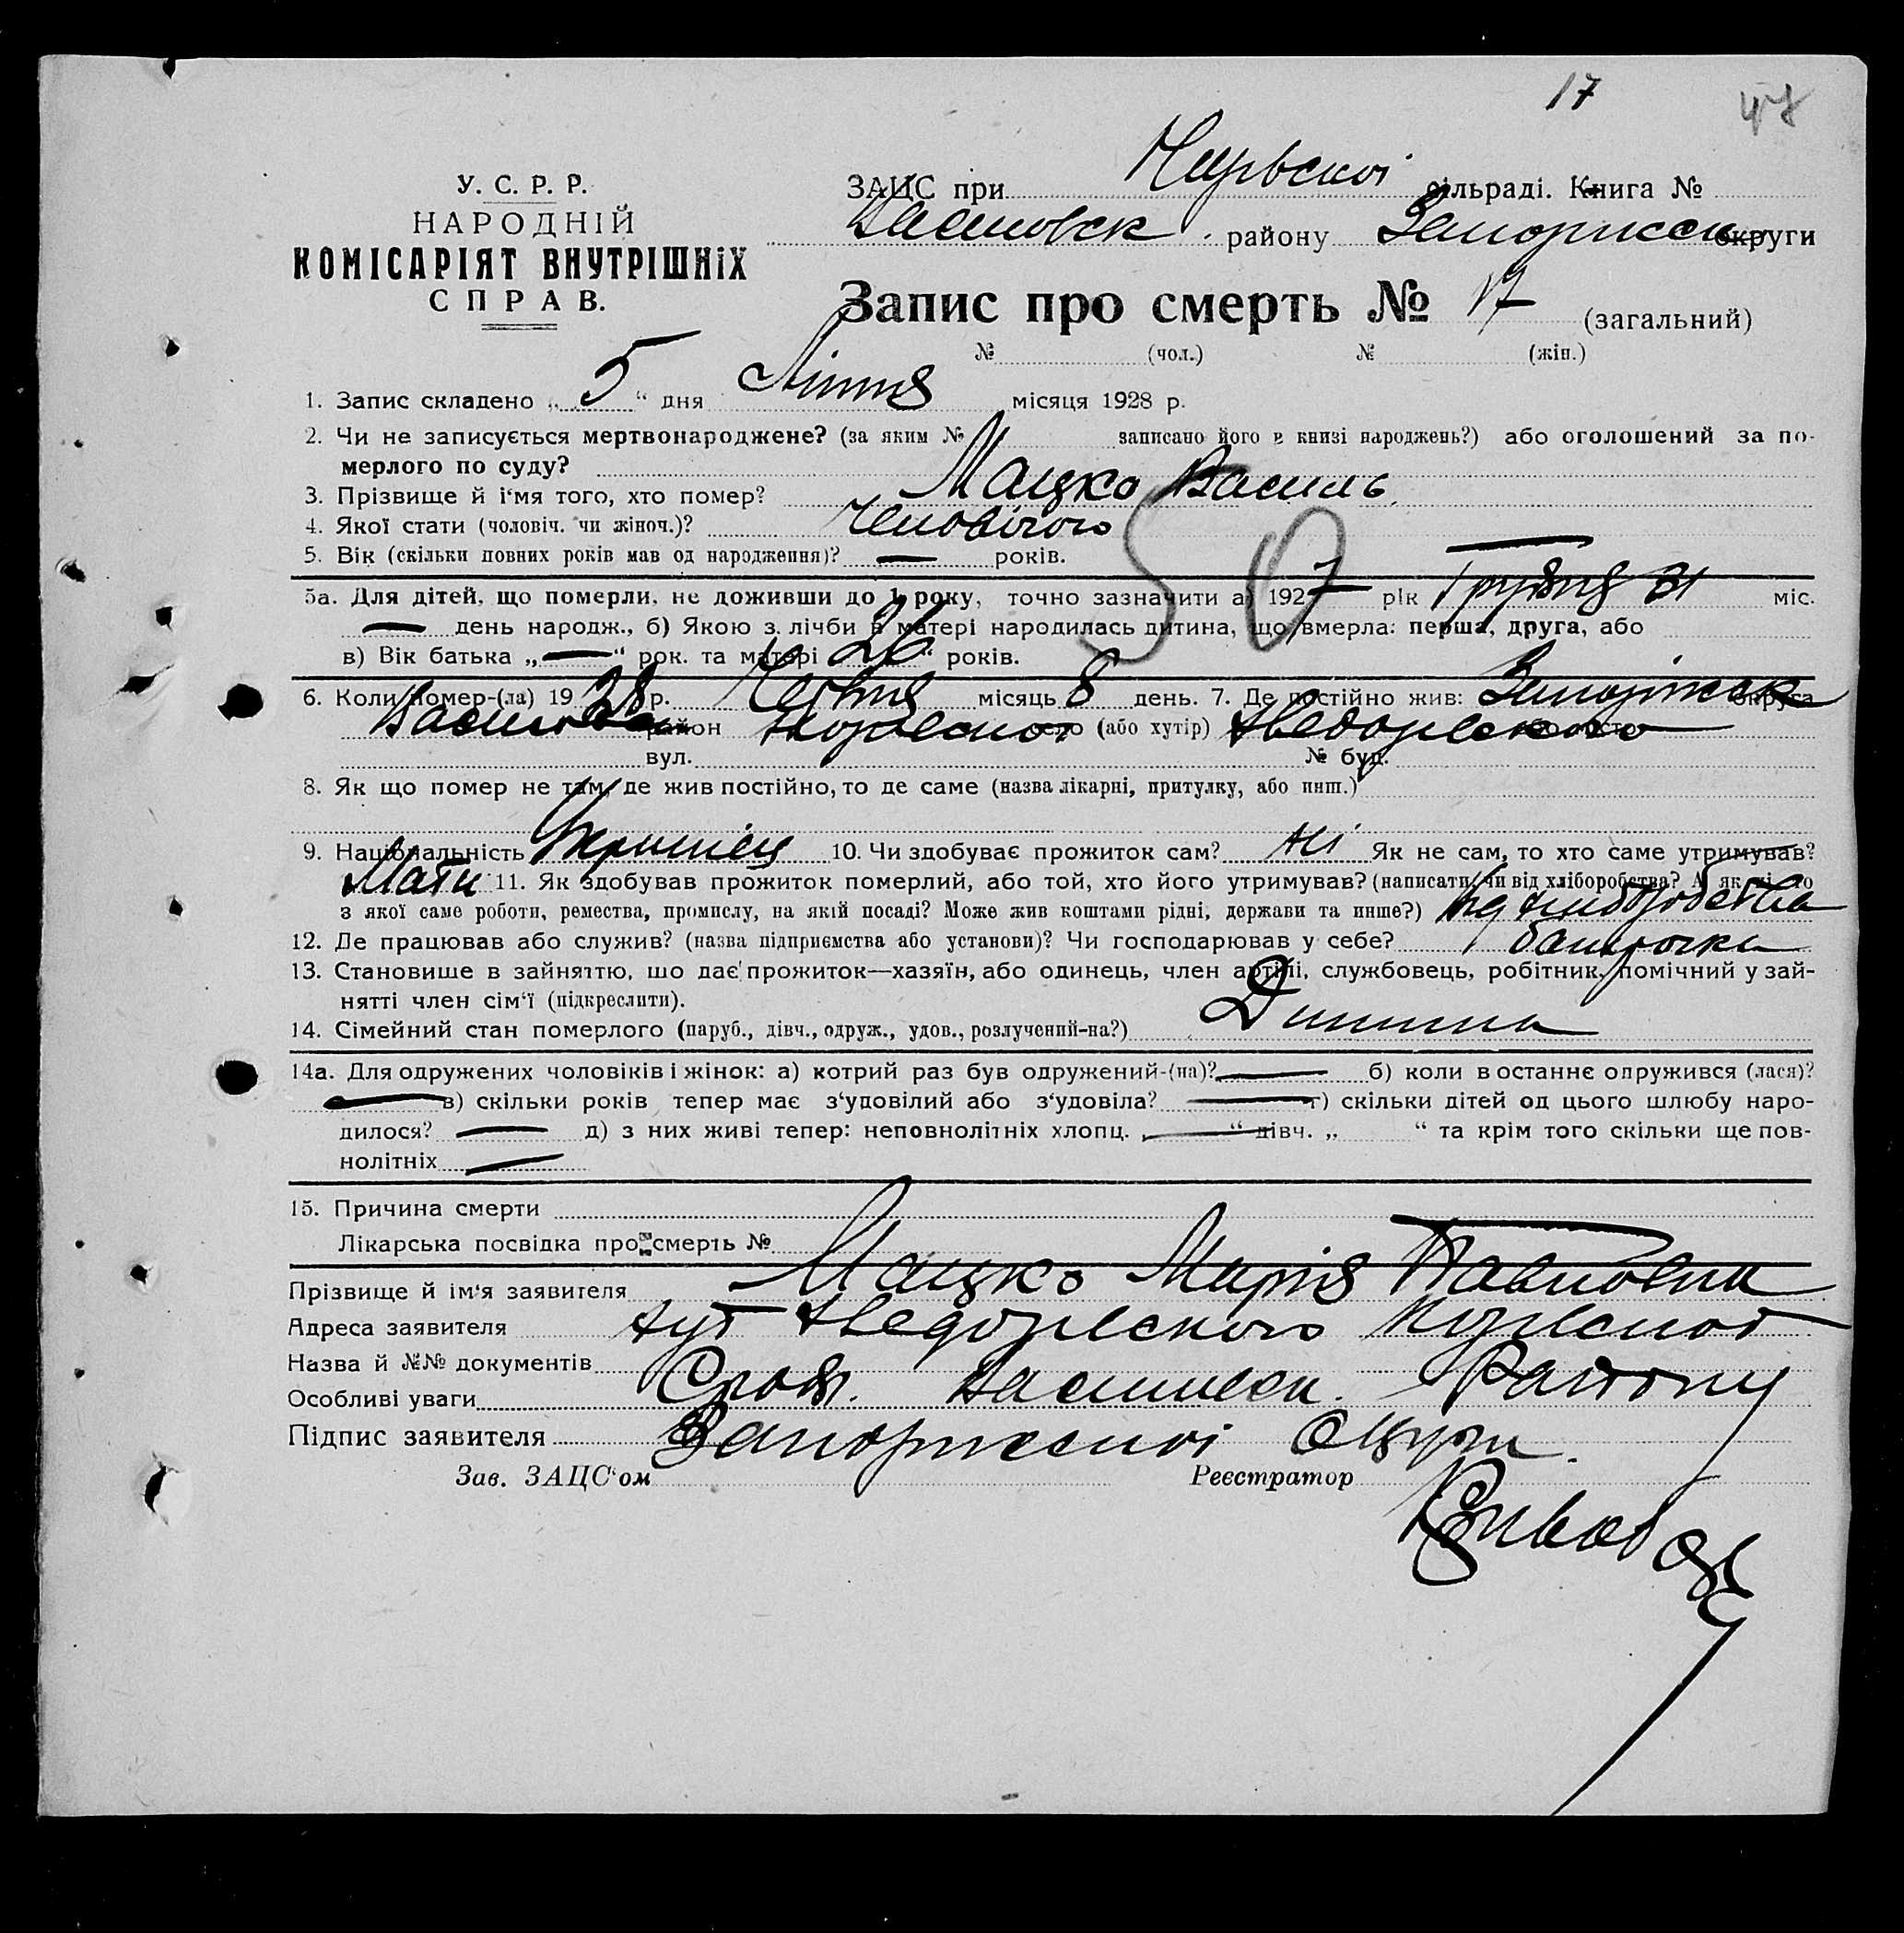 17
47
У. С. Р. Р.
НАРОДНІЙ
КОМІСАРІЯТ ВНУТРІШНІХ
СПРАВ.
ЗАЦС при сільраді. Книга №
району округи
Запис про смерть № 17 (загальний)
№ (чол.) № (жін.)
1. Запис складено „ 5 “ дня Липня місяця 1928 р.
2. Чи не записується мертвонароджене? (за яким № записано його в книзі народжень?) або оголошений за по-
мерлого по суду?
3. Прізвище й і‘мя того, хто помер? Мацко Василь
4. Якої стати (чоловіч. чи жіноч.)? Чоловічого
5. Вік (скільки повних років мав од народження)? — років.
50
5а. Для дітей, що померли, не доживши до 1 року, точно зазначити а) 1927 рік Грудня 31 міс.
— день народж., б) Якою з лічби в матері народилась дитина, що вмерла: перша, друга, або
в) Вік батька „—“ рок. та матері „26“ років.
6. Коли помер-(ла) 1928 р. Червня місяць 8 день. 7. Де постійно жив: округа
район село (або хутір) або місто
вул. № буд.
8. Як що помер не там, де жив постійно, то де саме (назва лікарні, притулку, або инш.)
9. Національність Українець 10. Чи здобуває прожиток сам? Ні Як не сам, то хто саме утримував?
Мати 11. Як здобував прожиток померлий, або той, хто його утримував? (написати, чи від хліборобства? А як ні, то
з якої саме роботи, ремества, промислу, на якій посаді? Може жив коштами рідні, держави та инше?) Від хліборобства
12. Де працював або служив? (назва підприємства або установи)? Чи господарював у себе? батрачка
13. Становише в зайняттю, шо дає прожиток—хазяїн, або одинець, член артілі, службовець, робітник, помічний у зай-
нятті член сім‘ї (підкреслити).
14. Сімейний стан померлого (паруб., дівч., одруж., удов., розлучений-на?) Дитина
14а. Для одружених чоловіків і жінок: а) котрий раз був одружений-(на)? — б) коли в останнє одружився (лася)?
— в) скільки років тепер має з‘удовілий або з‘удовіла? — г) скільки дітей од цього шлюбу наро-
дилося? — д) з них живі тепер: неповнолітніх хлопц. „—“ дівч. „ “ та крім того скільки ще пов-
нолітніх —
15. Причина смерти
Лікарська посвідка про смерть №
Прізвище й ім‘я заявителя Мацко Марія Павловна
Адреса заявителя хут
Назва й №№ документів Району
Особливі уваги
Підпис заявителя
Зав. ЗАЦС‘ом Реєстратор